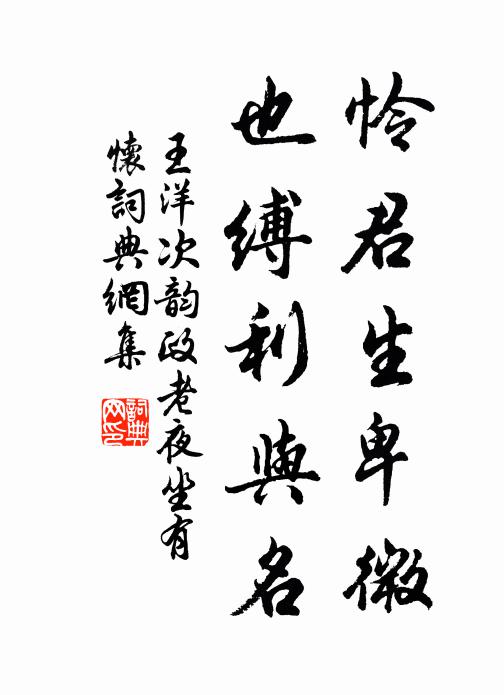 怜君生卑微
也縛利與名
王洋次韵政老夜坐有
懷詞典網集
詞典
网印